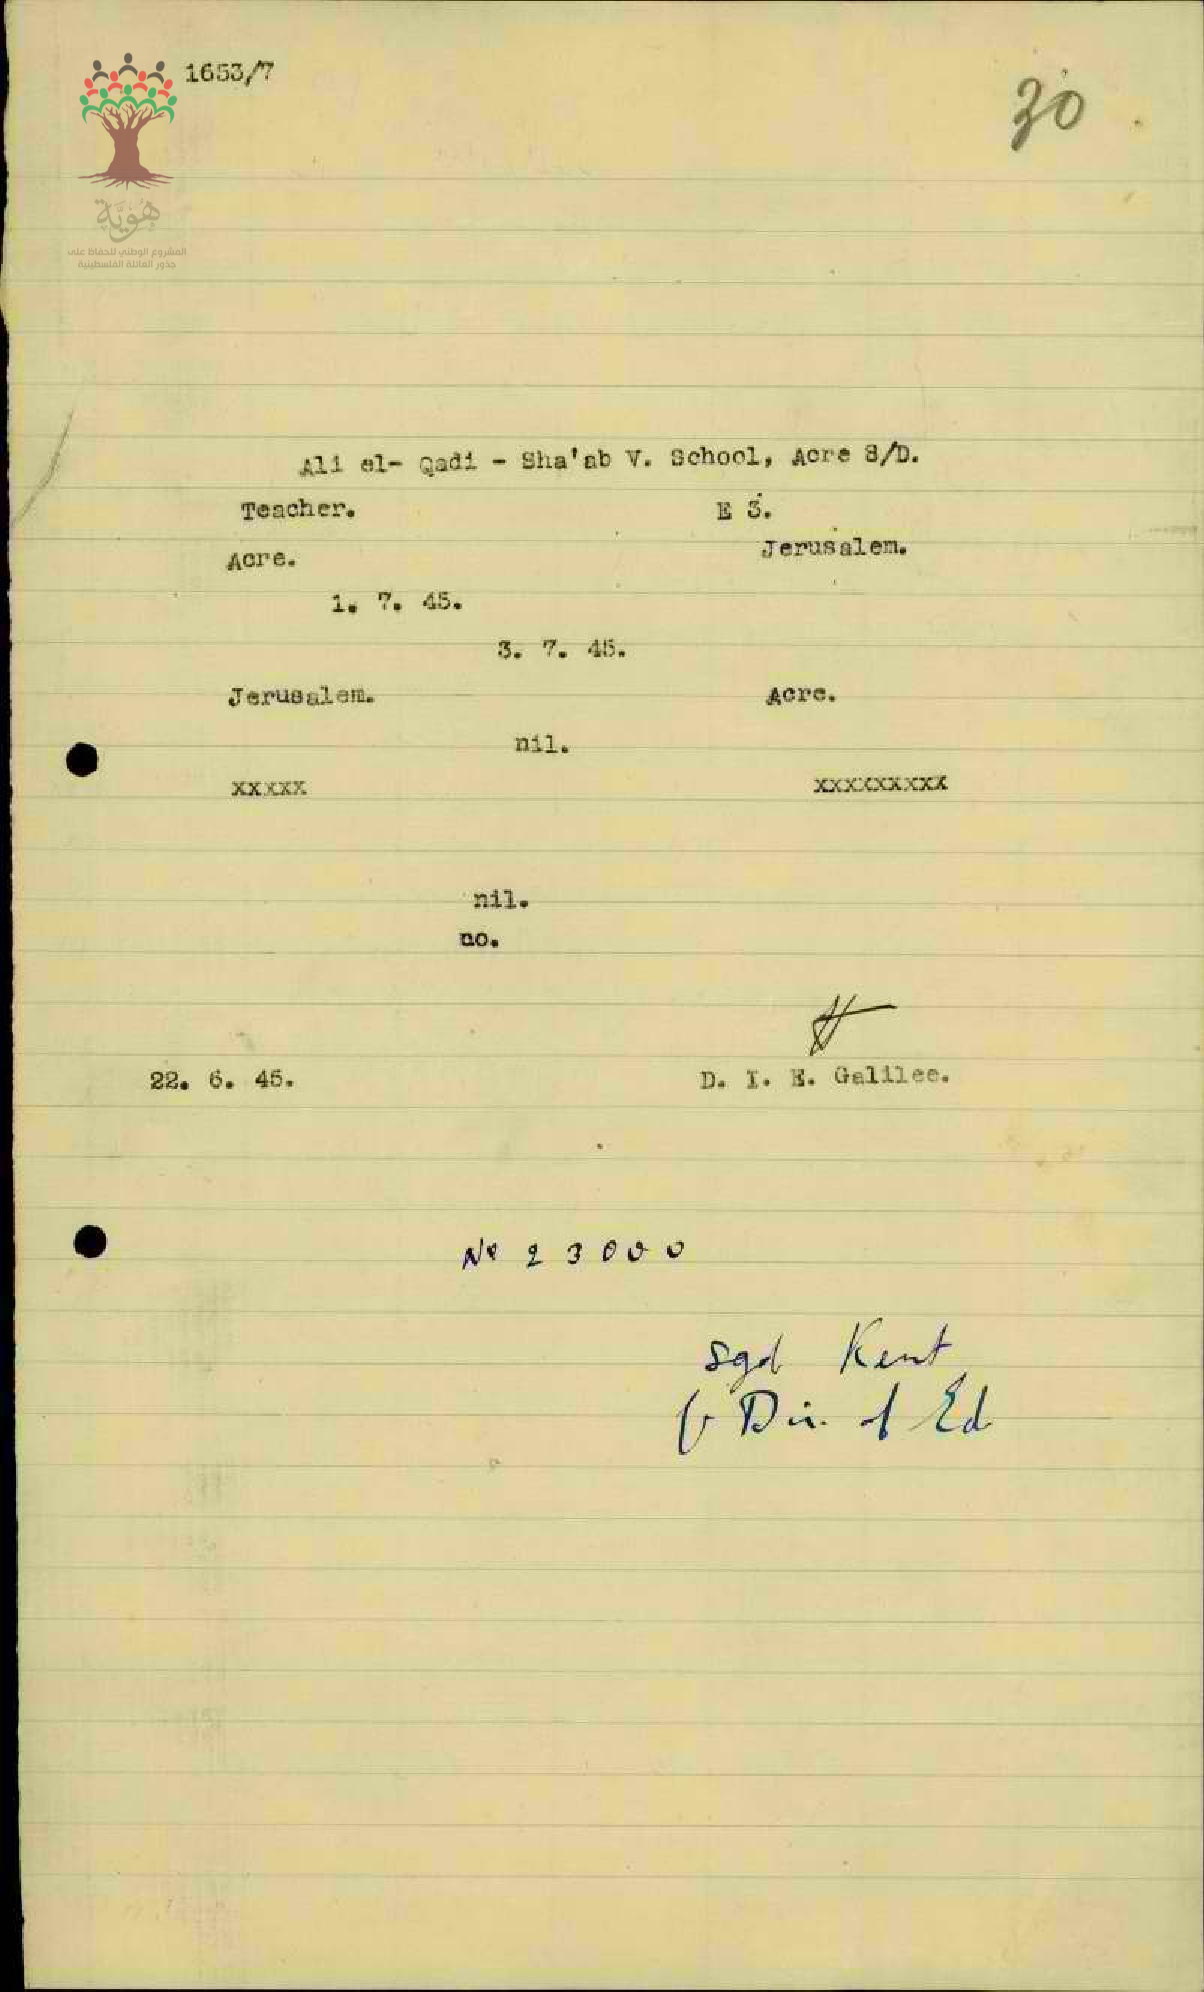 1653/7
30
هوية
المشروع الوطني للحفاظ على
جذور العائلة الفلسطينية
Ali el- Qadi - Sha'ab V. School, Acre S/D.
Teacher. E 3.
Acre. Jerusalem.
1. 7. 45.
3. 7. 45.
Jerusalem. Acre.
nil.
xxxxx xxxxxxxxx
nil.
no.
22. 6. 45. D. I. E. Galilee.
No 23000
sgd Kent
f Dir. of Ed